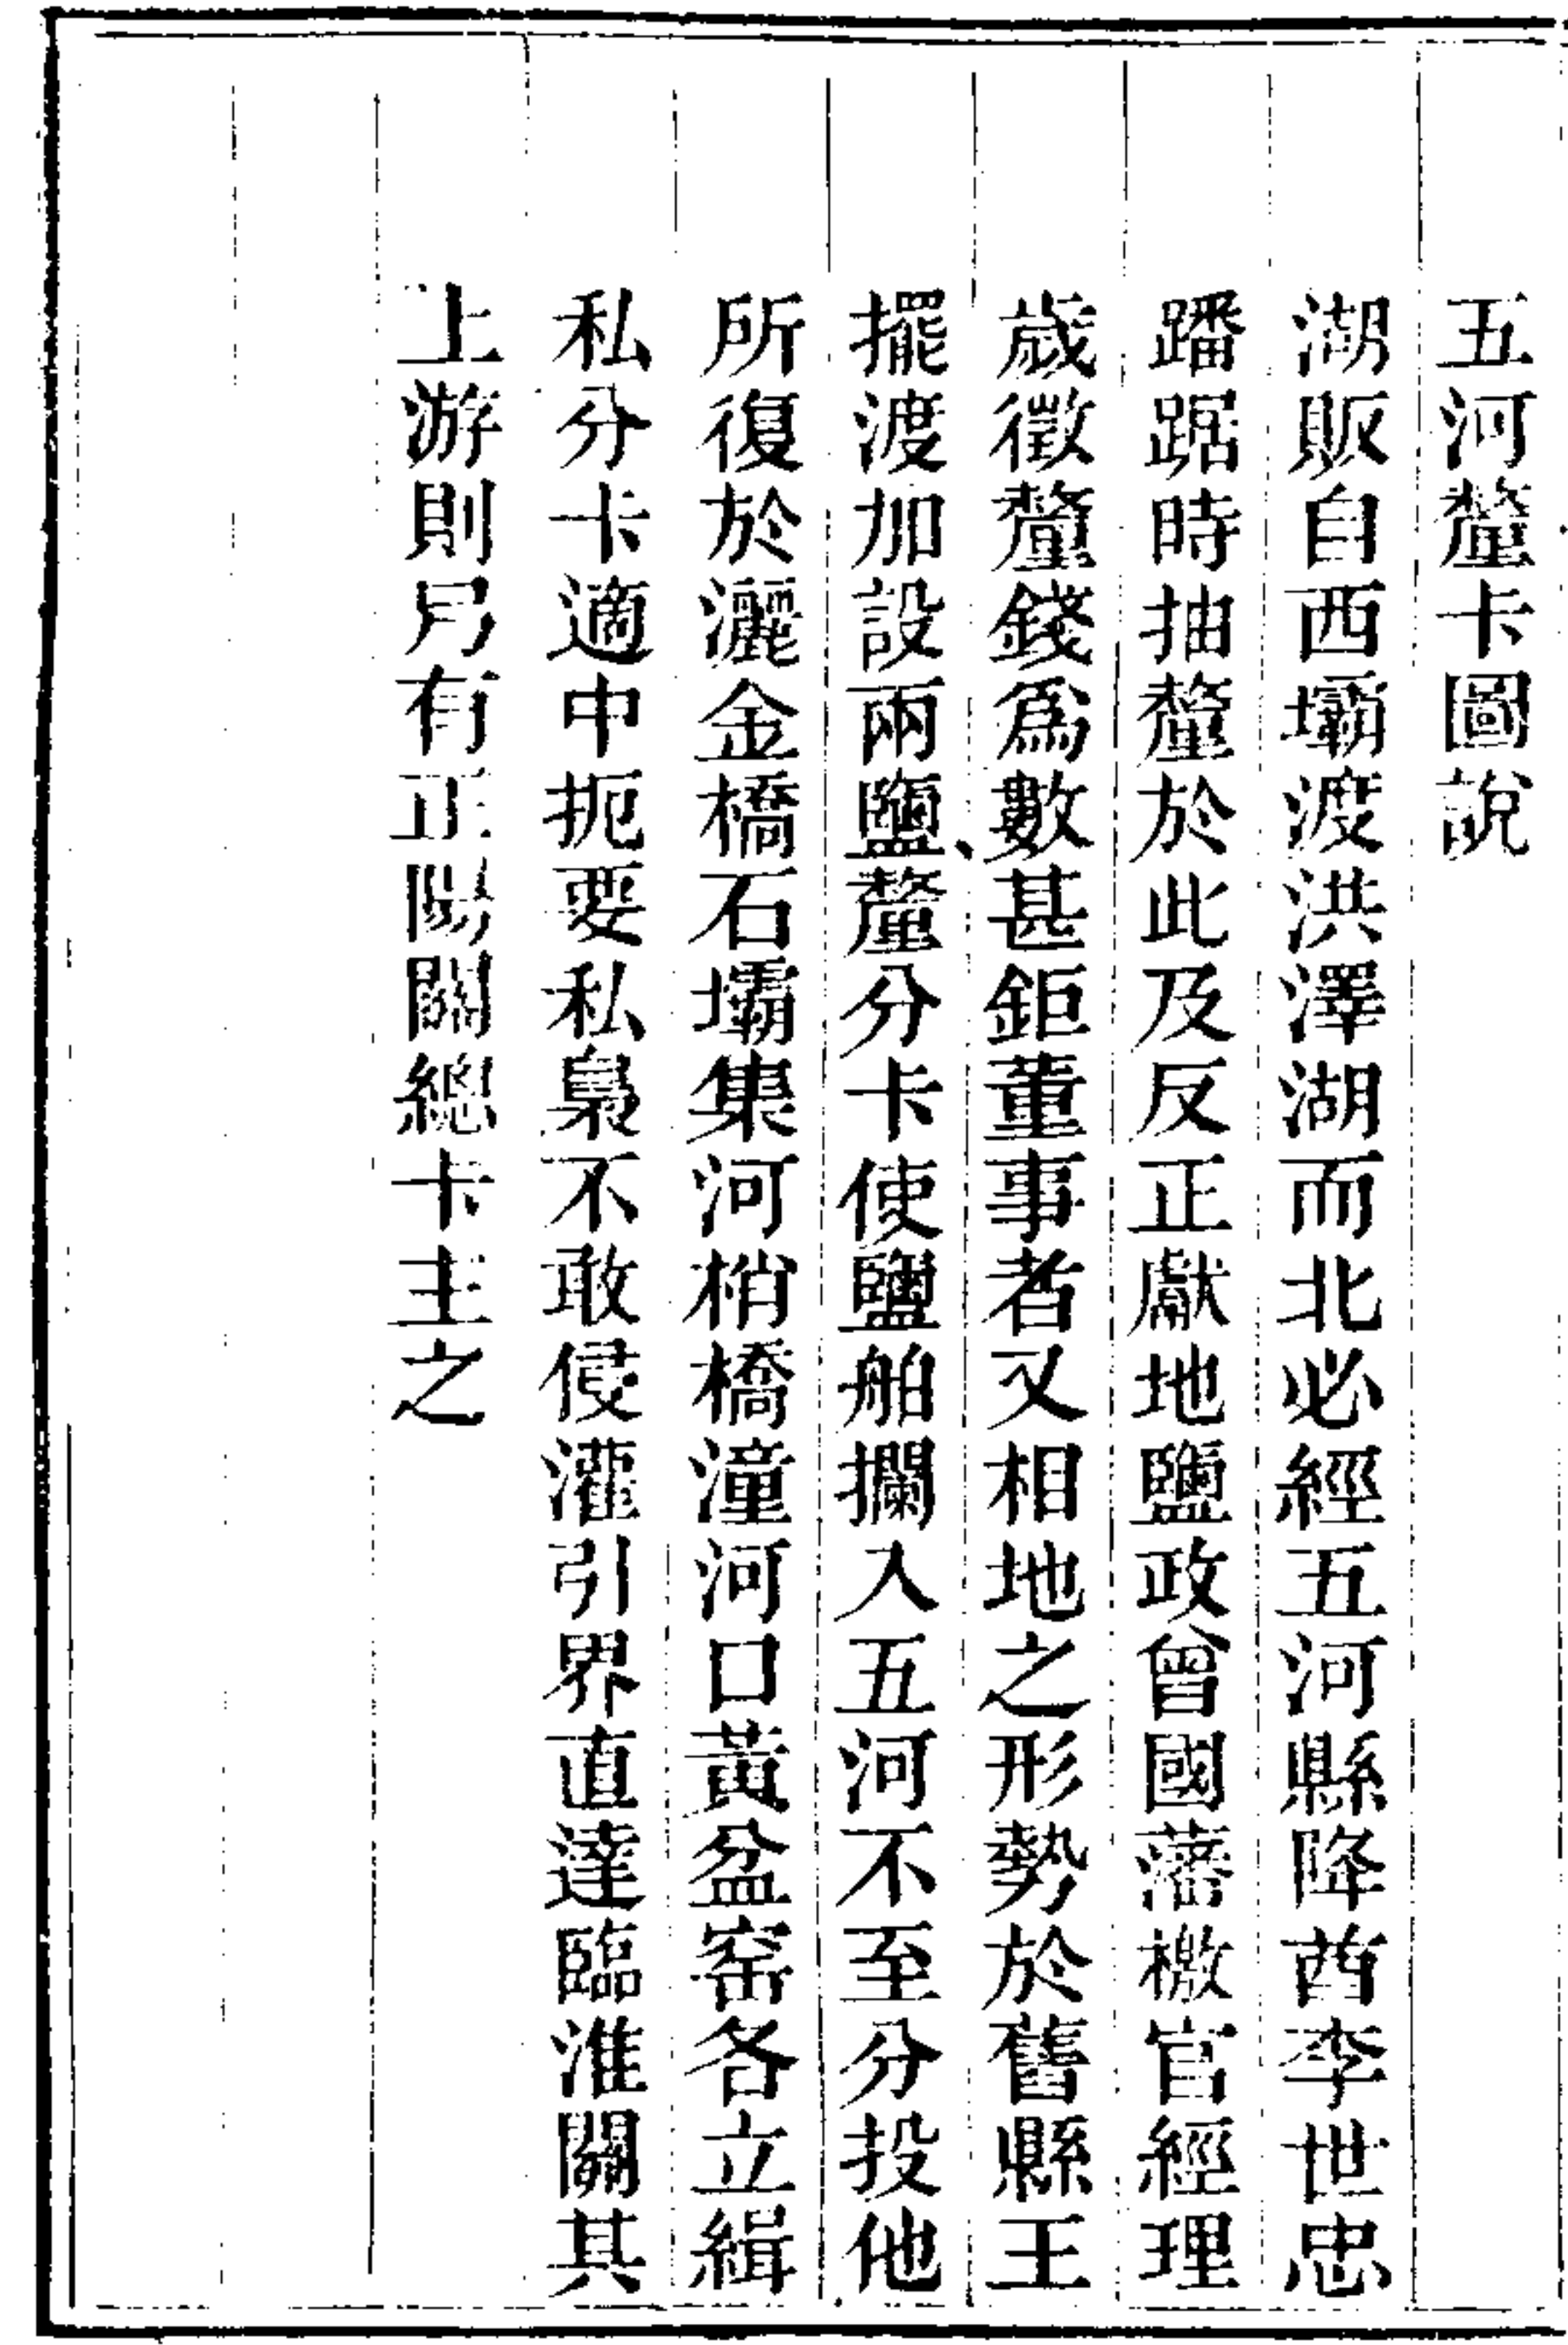 五河釐卡圖說
湖販自西壩渡洪澤湖而北必經五河縣降酋李世忠
蹯踞時抽釐於此及反正獻地鹽政曾國藩檄官經理
歲徵釐錢爲數甚鉅董事者又相地之形勢於舊縣王
擺渡加設兩鹽釐分卡使鹽船攔入五河不至分投他
所復於灑金橋石壩集河梢橋潼河口黃盆窑各立緝
私分卡適中扼要私梟不敢侵灌引界直達臨淮關其
上游則另有正陽關總卡主之